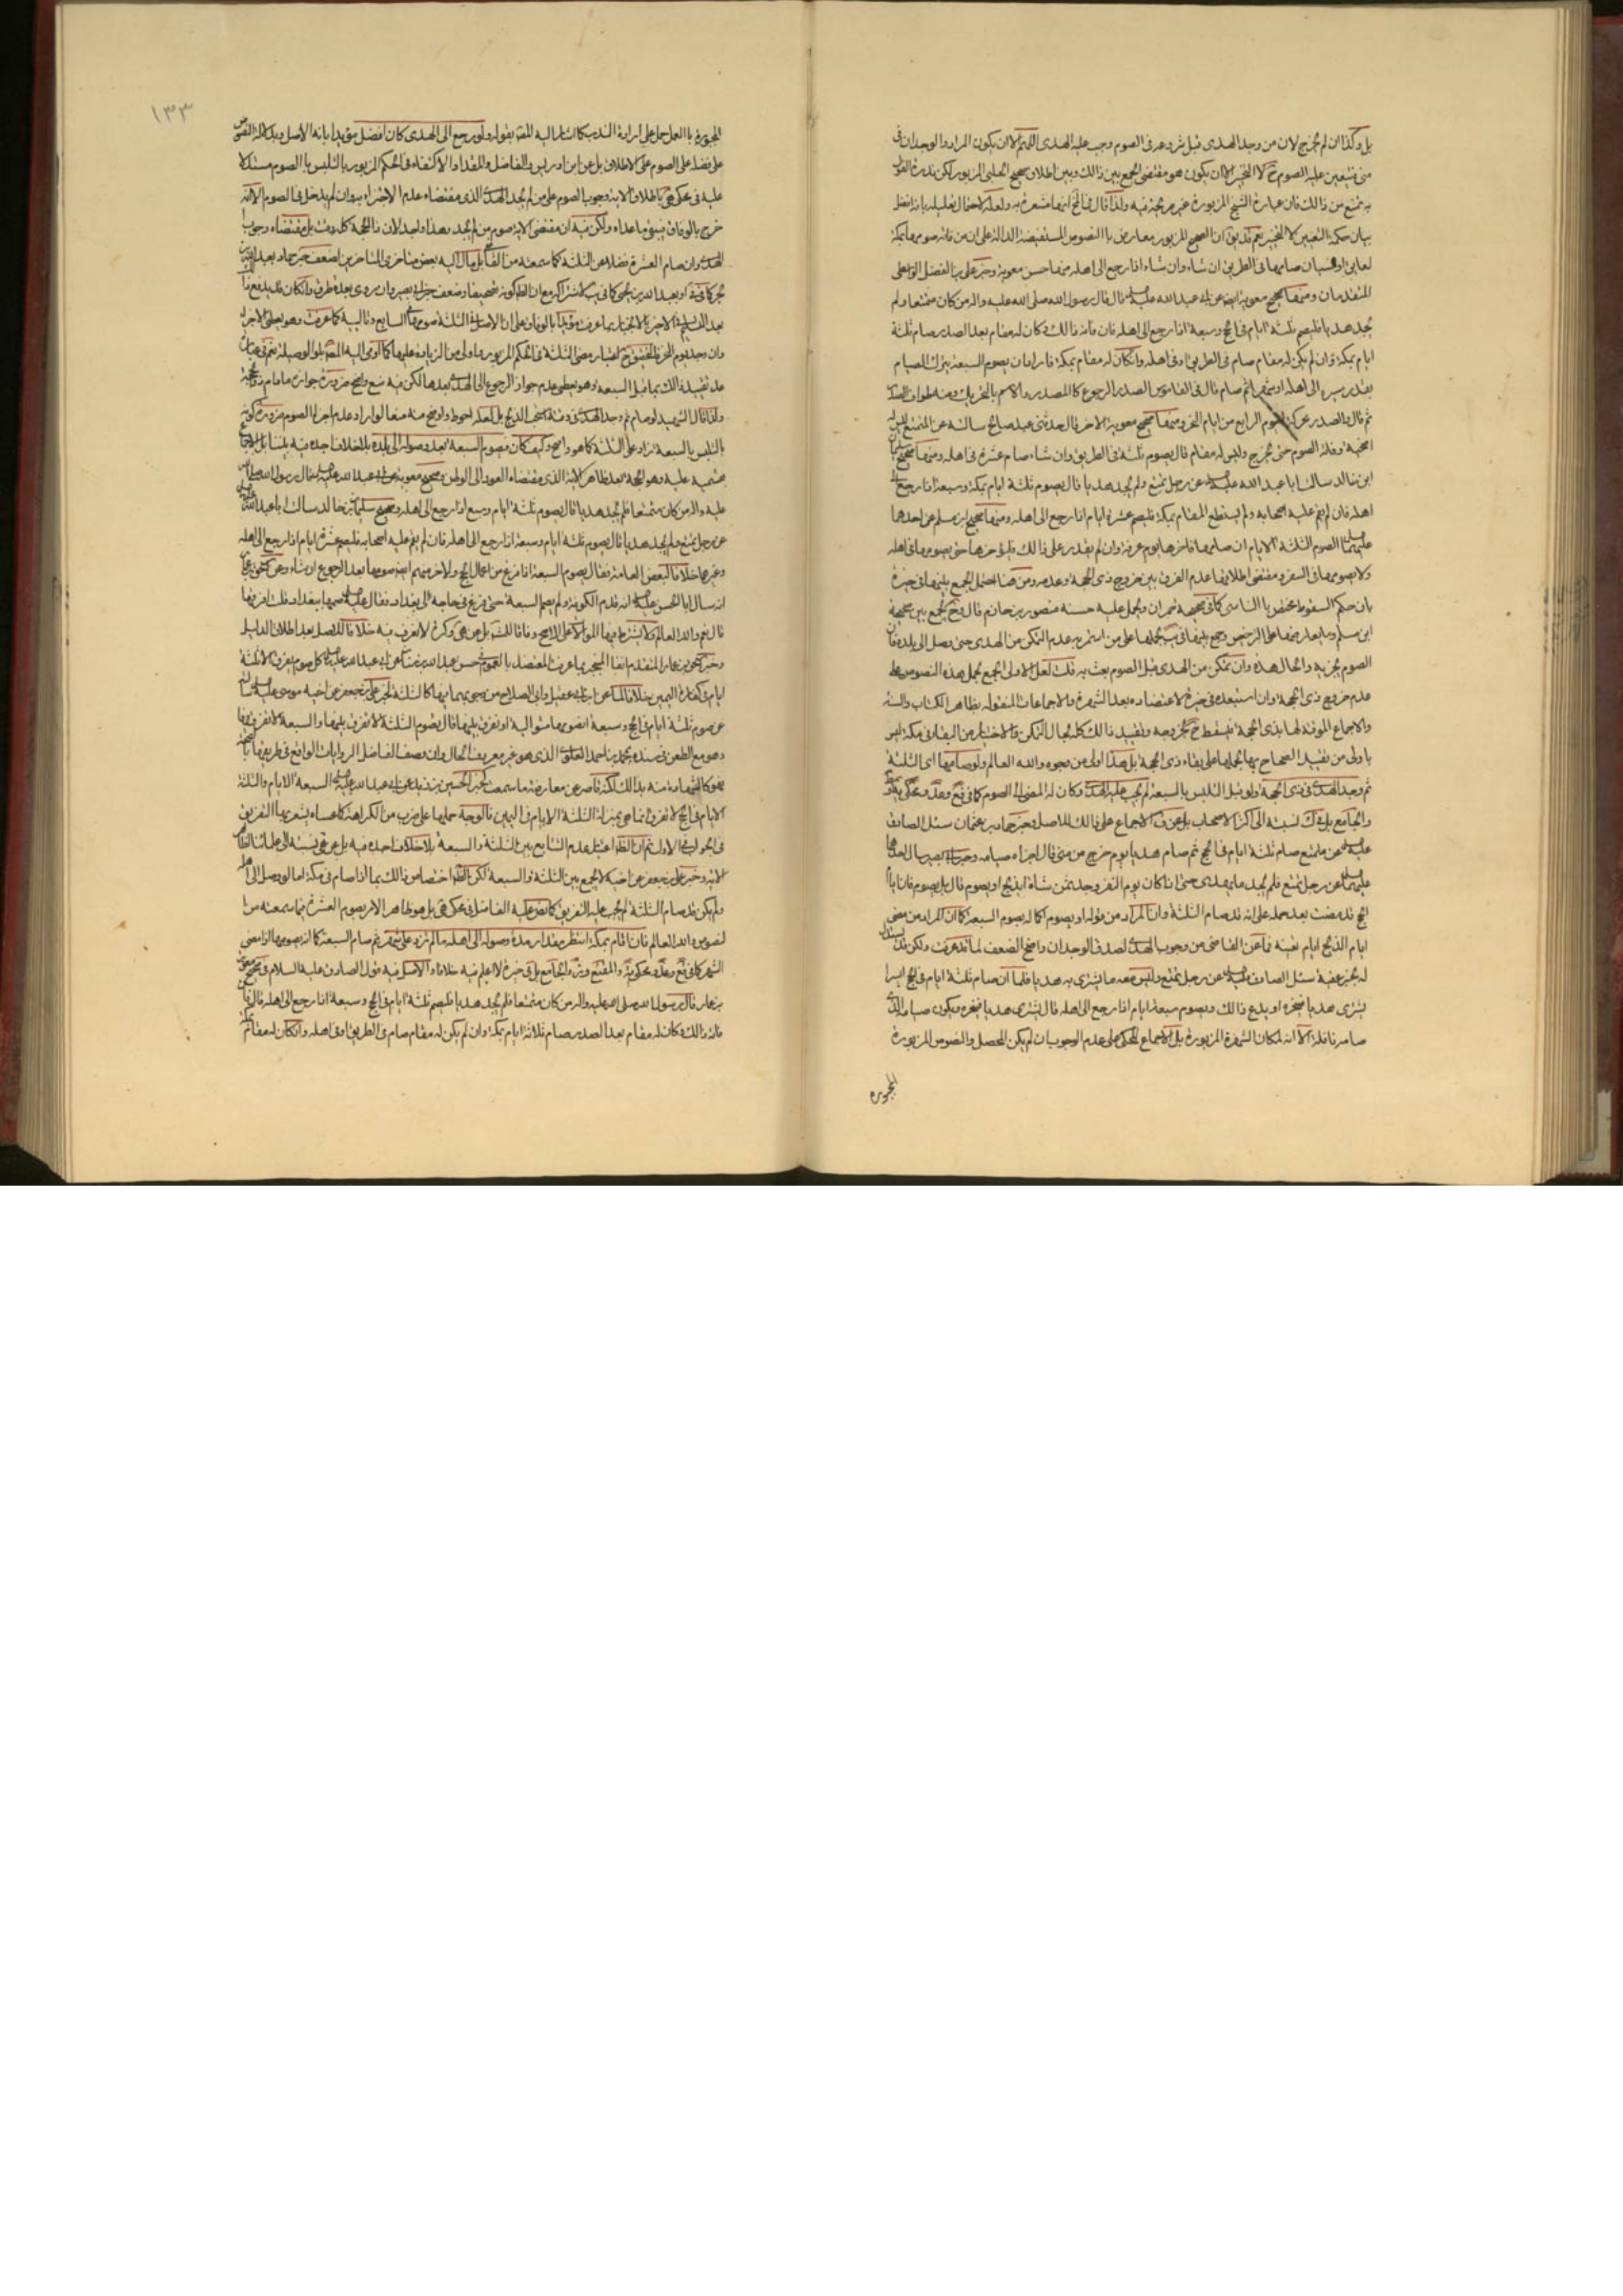 بل وكذا ان لم يخرج لان من وجد الهدى قبل شروعه فى الصوم وجب عليه الهدى اللهم الا ان يكون المراد والوجدان فى
منى فيتعين عليه الصوم ح لا التخيير الا ان يكون هو مقتضى الجمع بين ذالك وبين اطلاق صحيح الحلبى المزبور لكن ندرة القول
به تمنع من ذالك فان عبارة الشيخ المزبورة غير صريحة فيه ولذا قال فى انها مشعرة به ولعله لاحتمال تعليله بانه افضل
بيان حكمة التعيين لا التخيير نعم قد يق ان الصحيح المزبور معارض باالنصوص المستفيضة الدالة على ان من فاته صومها بمكة
لعايق او نسيان صامها فى الطريق ان شاء وان شاء اذا رجع الى اهله منها حسن معوية وخبر على بن الفضل الواسطى
المتقدمان ومنها صحيح معوية ايضا عن ابى عبدالله عليه السلام قال قال رسول الله صلى الله عليه واله من كان متمتعا ولم
يجد هديا فليصم ثلثة ايام فى الحج وسبعة اذا رجع الى اهله فان فاته ذالك وكان له مقام بعد الصدر صام ثلثة
ايام بمكة وان لم يكن له مقام صام فى الطريق او فى اهله وان كان له مقام بمكة فاراد ان يصوم السبعة ترك الصيام
بقدر سيره الى اهله او شهرا ثم صام قال فى القاموس الصدر الرجوع كالمصدر والاسم بالتحريك ومنه طواف الصدر
ثم قال والصدر محركة اليوم الرابع من ايام النحر ومنها صحيح معوية الاخر قال حدثنى عبد صالح سالته عن المتمتع ليس له
اضحية وفاته الصوم حتى يخرج وليس له مقام قال يصوم ثلثة فى الطريق وان شاء صام عشرة فى اهله ومنها صحيح سليمان
ابن خالد سالت ابا عبدالله عليه السلام عن رجل تمتع ولم يجد هديا قال يصوم ثلثة ايام بمكة وسبعة اذا رجع الى
اهله فان لم يقم عليه اصحابه ولم يستطع المقام بمكة فليصم عشرة ايام اذا رجع الى اهله ومنها صحيح ابن مسلم عن احدهما
عليهما السلام الصوم الثلثة الايام ان صامها فاخرها يوم عرفة وان لم يقدر على ذالك فليؤخرها حتى يصومها فى اهله
ولا يصومها فى السفر ومقتضى اطلاقها عدم الفرق بين خروج ذى الحجة وعدمه ومن هنا احتمل الجمع بينهما فى خيرة
بان حكم السقوط مختص باالناسى كما فى صحيحة عمران ويحمل عليه حسنة منصور بن حازم قال وح يجمع بين صحيحة
ابن مسلم وما بعارضها على الترخيص وجمع بينهما فى يب بحملها على من استمر به عدم التمكن من الهدى حتى وصل الى بلده فان
الصوم يجزيه والحال هذه وان تمكن من الهدى قبل الصوم بعث به قلت لعل الاولى الجمع بحمل هذه النصوص على
عدم خروج ذى الحجة وان استبعده فى خيرة لاعتضاده بعد الشهرة والاجماعات المنقوله بظاهر الكتاب والسنة
والاجماع الموقتة لها بذى الحجة فيسقط ح بخروجه وتقييد ذالك كله بحال التمكن والاختيار من البقاء فى مكة ليس
باولى من تقييد الصحاح بها بحملها على بقاء ذى الحجة بل هذا اولى من وجوه والله العالم ولو صامها اى الثلثة
ثم وجد الهدى فى ذى الحجة ولو قبل التلبس بالسبعة لم يجب عليه الهدى وكان له المضى الى الصوم كما فى
والجامع بل نسبته الى اكثر الاصحاب بل عن ف الاجماع على ذالك للاصل وخبر حماد بن عثمان سئل الصادق
عليه السلام عن متمتع صام ثلثة ايام فى الحج ثم صام هديا يوم خرج من منى قال اجزاه صيامه وخبر ابى بصير سال احدهما
عليهما السلام عن رجل تمتع فلم يجد ما يهدى حتى اذا كان يوم النفر وجد ثمن شاة ايذبح او يصوم قال بل يصوم فان ايام
الحج قد مضت بعد حمله على انه قد صام الثلثة وان المراد من قوله او يصوم اكماله بصوم السبعة كما ان المراد من مضى
ايام الذبح ايام تعينه فما عن القاضى من وجوب الهدى لصدق الوجدان واضح الضعف لما قد عرفت ولكن قد يستدل
له بخبر عقبة سئل الصادق عليه السلام عن رجل تمتع وليس معه ما يشترى به هديا فلما ان صام ثلثة ايام فى الحج ايسر ا
يشترى هديا فينحره او يدع ذالك ويصوم سبعة ايام اذا رجع الى اهله قال يشترى هديا فينحره ويكون صيامه الذى
صامه نافلة الا انه لمكان الشهرة المزبورة بل الاجماع المحكى على عدم الوجوب ان لم يكن المحصل والنصوص المزبورة
المجبورة
١٣٣
المجبورة باالعمل حمل على ارادة الندب كما اشار اليه المصنف بقوله ولو رجع الى الهدى كان افضل مؤيدا بانه الاصل وبدلالة النصوص
على فضله على الصوم على الاطلاق بل عن ابن ادريس والفاضل والمقداد الاكتفاء فى الحكم المزبور بالتلبس باالصوم مستدلا
عليه فى محكى باطلاق الاية وجوب الصوم على من لم يجد الهدى الذى مقتضاه عدم الاجتزاء به وان لم يدخل فى الصوم الا انه
خرج بالوفاق فيبقى ما عداه ولكن فيه ان مقتضى الاية صوم من لم يجد وهذا واجد لان ذا الحجة كله وقت بل مقتضاه وجوب
الهدى وان صام العشرة فضلا عن الثلثة كما سمعته من القائل مال اليه بعض متاخرى المتاخرين لضعف خبر حماد بعبدالله بن
بحر كما فى او بعبد الله بن يحيى كما فى يب لاشتراكه مع ان الظ كونه تصحيفا وضعف خبر ابى بصير وان روى بعدة طرق وان كان قد يدفع ذا
بعد التسليم فى الاخير بالانجبار بما عرفت مؤيدا بالوفاق على ان الاصل فى الثلثة صوم السابع وتالييه كما عرفت وهو يعطى الاجزاء
وان وجد يوم النحر فالتحقيق ح اعتبار مضى الثلثة فى الحكم المزبور بها ولى من الزيادة عليها كما اومى اليه المصنف بلو الوصلية نعم فى عن
عد تقييد ذالك بما قبل السبعة وهو يعطى عدم جواز الرجوع الى الهدى بعدها لكن فيه منع واضح ضرورة جوازه ما دام ذو الحجة
ولذا قال الشهيد لو صام ثم وجد الهدى فى وقته استحب الذبح بل لعله احوط واوضح منه منعا لو اراد عدم اجزاء الصوم ضرورة كونه
بالتلبس باالسبعة زاد على الثلثة كما هو واضح وكيف كان فصوم السبعة بعد وصوله الى بلده بلاخلاف اجده فيه بيننا بل الاجماع
بقسميه عليه وهو الحجة بعد ظاهر الاية الذى مقتضاه العود الى الوطن وصحيح معوية عن ابى عبدالله عليه السلام قال رسول الله صلى الله
عليه واله من كان متمتعا فلم يجد هديا قال يصوم ثلثة ايام وسبع اذا رجع الى اهله وصحيح سليمان بن خالد سالت ابا عبدالله عليه السلام
عن رجل تمتع ولم يجد هديا قال يصوم ثلثة ايام وسبعة اذا رجع الى اهله فان لم يقم عليه اصحابه فليصم عشرة ايام اذا رجع الى اهله
وغيرهما خلافا لبعض العامة فقال يصوم السبعة اذا فرغ من اعمال الحج ولاخر منهم ايضا صومها بعد الرجوع ان شاء وعن اسحق بن عمار
انه سال ابا الحسن عليه السلام انه قدم الكوفة ولم يصم السبعة حتى فزع فى حاجة الى بغداد فقال عليه السلام صمها ببغداد قلت افرقها
قال نعم والله العالم ولا يشترط فيها الموالاة على الاصح وفاقا للمشهور بل عن هى وكرة لا نعرف فيه خلافا للاصل بعد اطلاق الدليل
وخبر اسحق بن عمار المتقدم انفا المنجبر بما عرفت المعتضد بالعموم فى حسن عبدالله بن سنان عن ابى عبدالله عليه السلام كل صوم يفرق الا ثلثة
ايام فى كفارة اليمين خلافا لما عن ابن ابى عقيل وابى الصلاح من وجوبها فيها كالثلثة لخبر على بن جعفر عن اخيه موسى عليه السلام ساله
عن صوم ثلثة ايام فى الحج وسبعة ايصومها متوالية او يفرق بينها قال يصوم الثلثة لا يفرق بينها والسبعة لا يفرق بينها
وهو مع الطعن فى سنده بمحمد بن احمد العلوى الذى هو غير معروف الحال وان وصف الفاضل الروايات الواقع فى طريقها با لصحة
فهو كالشهادة منه بذالك لكنه قاصر عن معارضة ما سمعت لخبر الحسين بن زيد عن ابى عبدالله عليه السلام السبعة الايام والثلثة
الايام فى الحج لا تفرق انما هى بمنزلة الثلثة الايام فى اليمين فالوجه حملها على ضرب من الكراهة كما عساه يشعر بها التفريق
فى الجواب فى الاول ثم ان الظ اعتبار عدم التتابع بين الثلثة والسبعة بلاخلاف اجده فيه بل عن هى نسبته الى علمائنا لظاهر
الاية وخبر على بن جعفر عن اخيه لا يجمع بين الثلثة والسبعة لكن الظ اختصاص ذالك بما اذا صام فى مكة اما لو وصل الى اهله
ولم يكن قد صام الثلثة لم يجب عليه التفريق كما نص عليه الفاضل فى محكى هى بل هو ظاهر الامر بصوم العشرة فيما سمعته من ا
لنصوص والله العالم فان اقام بمكة انتظر مقدار مدة وصوله الى اهله ما لم تزد على شهر ثم صام السبعة كما انه يصومها لو مضى
الشهر كما فى والمقنع والجامع بل فى خيرة لا اعلم فيه خلافا والاصل فيه قول الصادق عليه السلام فى صحيح معوية
بن عمار قال رسول الله صلى الله عليه واله من كان متمتعا فلم يجد هديا فليصم ثلثة ايام فى الحج وسبعة اذا رجع الى اهله قال فان
فاته ذالك وكان له مقام بعد الصدر صام ثلاثة ايام بمكة وان لم يكن له مقام صام فى الطريق او فى اهله وان كان له مقام بمكة